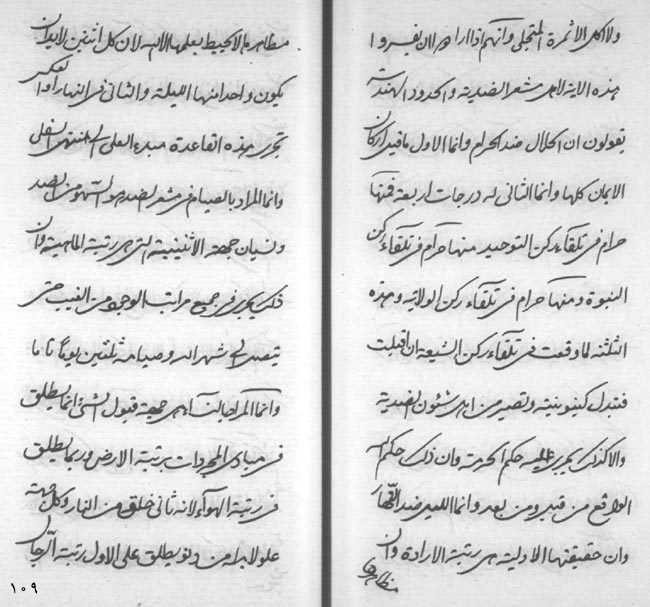 ولا اكل الاثمرة المتجلي وانكم اذا اراهم لان يفسروا
هذه الاية لاهل مشعر الضدية والحدود الهندسة
تقولون ان الحلال ضد الحرام وانما الاول ما فيه اركان
الايمان كلها وانما الثاني له درجات اربعة فمنها
حرام في تلقاء ركن التوحيد منها حرام في تلقاء ركن
النبوة ومنها حرام في تلقاء ركن الولاية وهذه
الثلثة لما وقعت في تلقاء ركن الشيعة ان اقبلت
فتبدل كينونيته وتصير من اهل شئون الضدية
والا كذلك يجري عليه حكم الحرمة وان ذلك حكم الله
الواقع من قبل ومن بعد وانما الليل ضد النهار
وان حقيقتها الاولية هي رتبة الارادة وان
مظاهرها
مظاهرها لا يحيط بعلمها الا الله لان كل اثنين لابد ان
يكون واحد منها الليلة والثاني في النهار او العكس
تجري هذه القاعدة مبدء العلى الى منتهى السفلى
وانما المراد بالصيام في مشعر الضد هو السهو من الضد
ونسيان جهة الاثنينية التي هي رتبة الماهية وان
ذلك يجري في جميع مراتب الوجود من الغيب حتى
يتصل الى شهر الله وصيامه ثلثين يوما تاما
وانما المراد بالنساء هي جهة قبول الشئ انما يطلق
في مبادي المجردات برتبة الارض وربما يطلق
في رتبة الهوآء لانه ثاني خلق من النار وكل جهة
علو لابد له من دنو يطلق على الاول رتبة الرجال
١٠٩